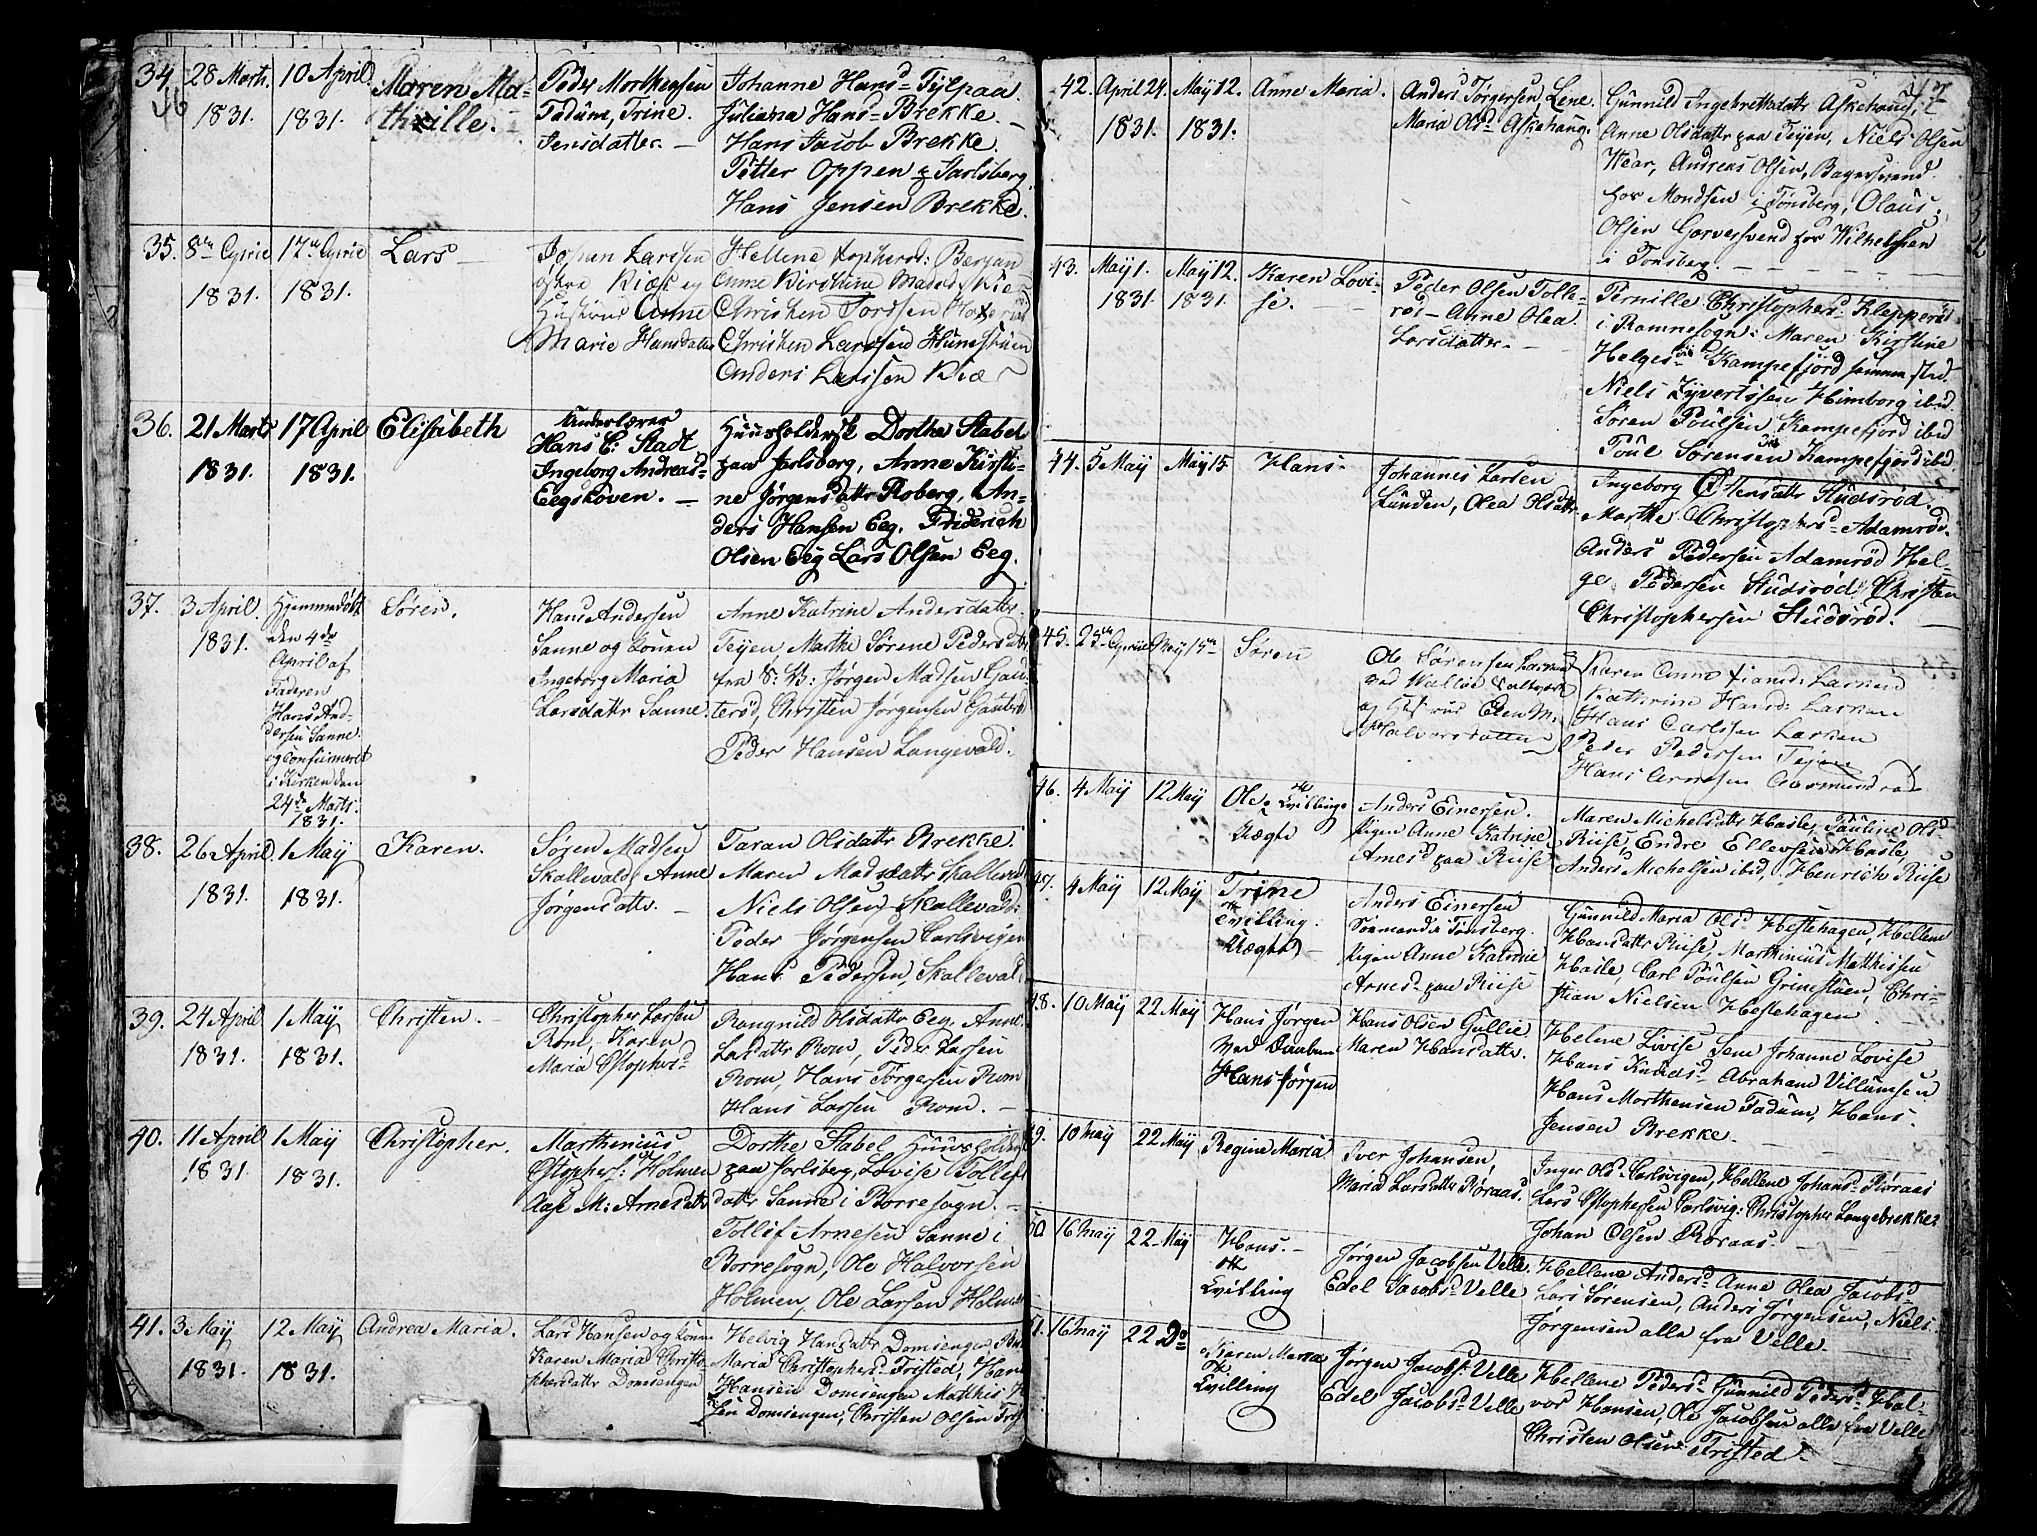 46
34. 28 Marts 1831. 10 April 1831. Maren Mathille.
Peder Morthensen
Tadum, Trine
Jensdatter. —
Johanne Hansd Fylpaa.
Juliana Hansd Brekke. —
Hans Jacob Brekke.
Petter Oppen p Jarlsberg
Hans Jensen Brekke.
35. 8de April 1831. 17de April 1831. Lars —
Johan Larssen
Hustrue Anne
Marie Hansdatter
Hellene
Anne Kirstine Madsd. Kiæ
Christen Tordsen
Christen Larssen
Anders Larssen Kiær
36. 21 Marts 1831. 17 April 1831. Elisabeth
Underlærer
Hans C: Stadt
Ingeborg Andreasd
Eegskoven. —
Huusholdersk Dorthe Stabel
paa Jarlsberg, Anne Kirsti-
ne Jørgensdattr Roberg, An-
ders Hansen Eeg. Friderich
Olsen Eeg Lars Olsen Eeg.
37. 3 April 1831. Hjemmedøbt
den 4de
April af
Faderen
Hans An-
dersen Sanne
og confirmeret
i Kirken den
24de Marts.
1831.
Søren.
Hans Andersen
Sanne og Konen
Ingeborg Maria
Larsdattr Sanne.
Anne Katrine Andersdattr
Teijen Marthe Sørene Pedersdattr
fra S: B: Jørgen Madsen Gau-
terød, Christen Jørgensen Gauterød
Peder Hansen Langevald.
38. 26 April 1831. 1 May 1831. Karen.
Søren Madsen
Skallevald, Anne
Jørgensdattr. —
Taran Olsdattr Brekke.
Maren Madsdattr Skallevald
Niels Olsen Skallevald:
Peder Jørgensen Carlsvigen
Hans Pedersen, Skallevald
39. 24 April 1831. 1 May 1831. Christen. —
Christopher Larsen
Rom, Karen
Maria Chstophersd
Rangnild Olsdattr Eeg. Anne
Larsdattr Rom, Peder Larsen
Rom, Hans Torgersen Rom
Hans Larsen Rom. —
40. 11 April 1831. 1 May 1831. Christopher.
Marthenius
Chstophers: Holmen
Aase M: Arnesdattr
Dorthe Stabel Huusholdersk
paa Jarlsberg, Lovise Tollefs
dattr Sanne i Borresogn. —
Tollif Arnesen Sanne i
Borresogn, Ole Halvorsen
Holmen, Ole Larsen Holmen
41. 3 May 1831. 12 May 1831. Andrea Maria.
Lars Hansen og Konen
Karen Maria Christo-
phersdattr Domsengen
Helvig Hansdattr Domsengen
Maria Christophersd Fristed, Hans
Hansen Domsengen Mathis
sen Domsengen, Christen Olsen
47
42. April 24 1831. May 12. 1831. Anne Maria.
Anders Tørgersen, Lene
Maria Olsd Askehaug.
Gunnild Ingebretsdattr Askehaug,
Anne Olsdattr paa Teijen, Niels Olsen
Wear, Andreas Olsen, Bagersvend
hos Mondsen i Tønsberg, Olaus
Olsen Garversvend hos Wilhelmsen
i Tønsberg. — — — —
43. May 1. 1831. May 12. 1831. Karen Lovi-
se. —
Peder Olsen Tolle-
rød — Anne Olea
Larsdatter. —
Pernille Christophersd Klepperød
i Ramnesogn: Maren Kirstine
Helgesd Kampefjord sammestd.
Niels Syvertssen Himborg ibid
Søren Poulsen Kampefjord ibid
Poul Sørensen Kampefjord ibid
44. 5 May May 15 Hans.
Johannes Larsen
Lunden, Olea Olsdattr.
Ingeborg Ottensdattr Studsrød.
Marthe Christophersd Adamrød.
Anders Pedersen Adamrød Hel-
ge Pedersen Studsrød: Christen
Christophersen Studsrød.
45. 25de April May 15de Søren
Ole Sørensen
ved Walløe Saltværk
og Hustrue Elen M.
Halvorsdatter
Karen Anne
Kathrine Hansd.
Hans Carlssen
Peder Pedersen Teijen
Hans Arnesen
46. 4 May 12 May Ole
Tvilling
Uægte
Anders Einersen.
Pigen Anne Katrine
Arnesd paa Riise
Maren Michelsdattr Hasle, Pauline Olsd
Riise, Endre Ellevsen Hasle,
Anders Michelsen ibid, Henrich Riise
47. 4 May 12 May Trine
Tvilling.
Uægte
Anders Einersen
Sømand i Tønsberg.
Pigen Anne Katrine
Arnesd paa Riise
Gunnild Maria Olsd Hestehagen, Hellene
Hansdattr Riise, Marthinius Mathissen
Hasle, Carl Poulsen Grimstøen, Chri-
stian Nielsen Hestehagen.
48. 10 May 22 May Hans Jørgen
Ved Daaben
Hans Jørgen
Hans Olsen Gullie
Maren Hansdattr.
Helene Lovise Sem Johanne Lovise
Hans Knudsd Abraham Villumsen
Hans Morthensen Tadum, Hans
Jensen Brekke. —
49. 10 May 22 May Regine Maria
Iver Johansen,
Maria Larsdattr Røraas.
Inger Olsd Carlsvigen, Hellene Johansd Røraas
Lars Chstophersen Carlsvig: Christopher Langebrekke
Johan Olsen Røraas. —
50. 16 May 22 May Hans. —
Tvilling
Jørgen Jacobsen Velle
Edel Jacobsd Velle
Hellene Andersd Anne Olea Jacobsd
Lars Sørensen, Anders Jørgensen, Niels
Jørgensen alle fra Velle.
51. 16 May 22 Do Karen Maria
Tvilling
Jørgen Jacobs: Velle
Edel Jacobsd Velle
Hellene Pedersd Gunnild Pedersd Hal-
vor Hansen, Ole Jacobsen alle fra Velle
Christen Olsen Fristed.